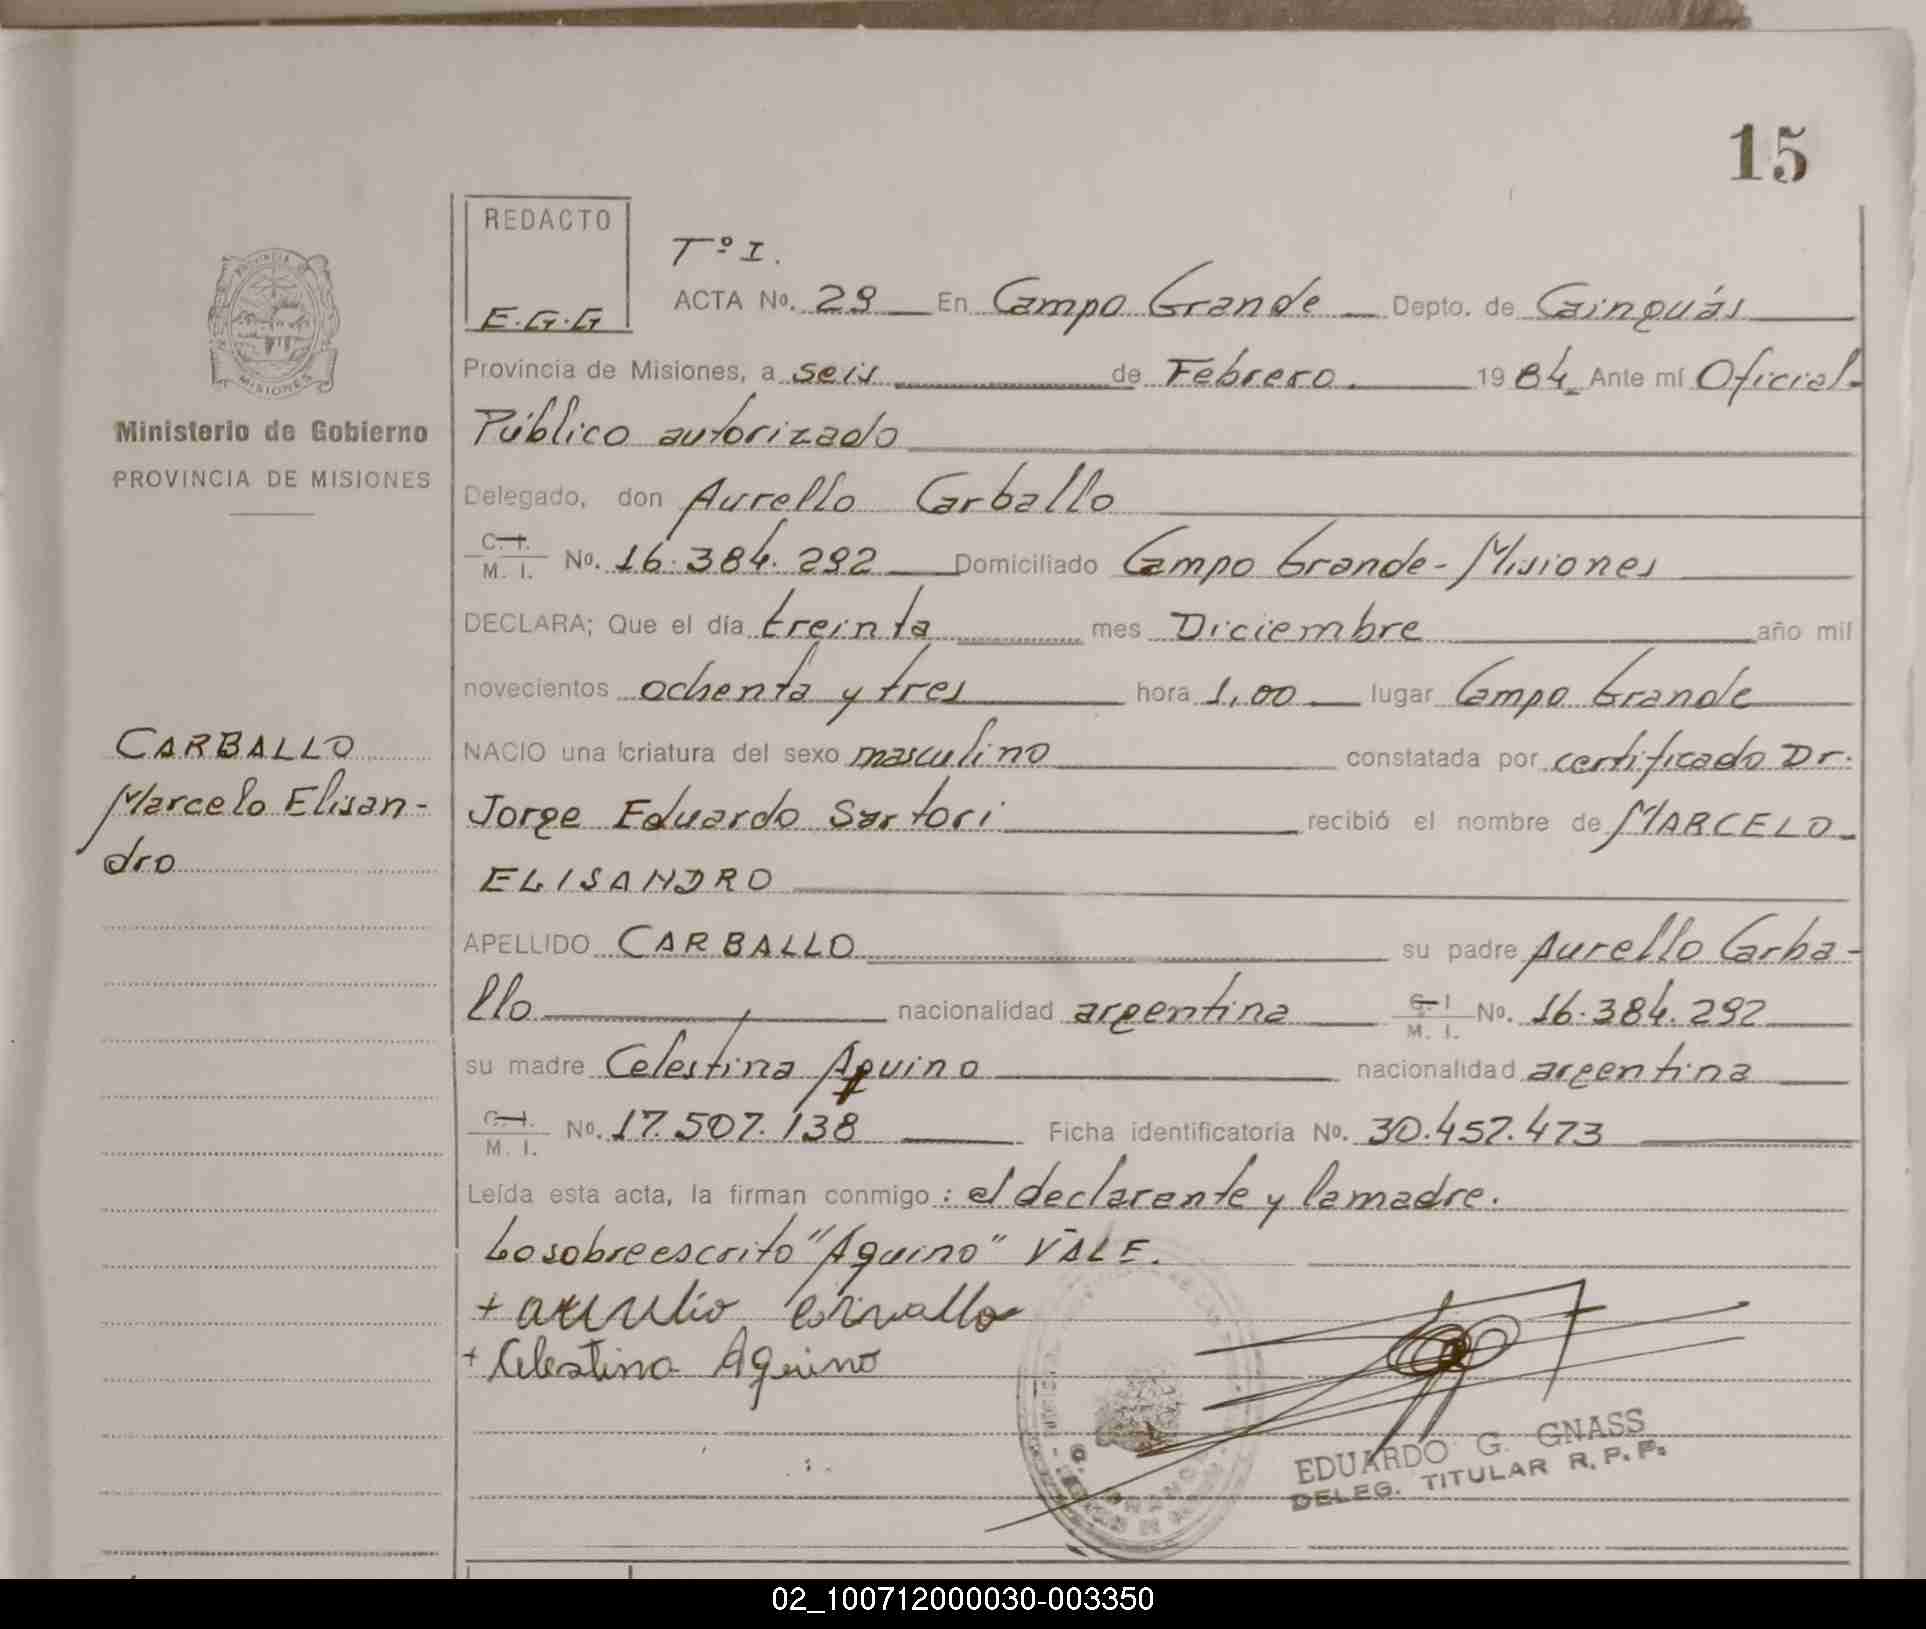 15
REDACTO
E.G.G
Tº I.
ACTA Nº. 29 En Campo Grande Depto. de Cainguás
Provincia de Misiones, a seis de Febrero. 1984 Ante mí Oficial
Público autorizado
Delegado, don Aurelio Carballo
C. I.
M. I. Nº. 16.384.292 Domiciliado Campo Grande - Misiones
DECLARA; Que el día treinta mes Diciembre año mil
novecientos ochenta y tres hora 1,00 lugar Campo Grande
NACIO una criatura del sexo masculino constatada por certificado Dr.
Jorge Eduardo Sartori recibió el nombre de MARCELO
ELISANDRO
APELLIDO CARBALLO su padre Aurelio Carba-
llo nacionalidad argentina C. I.
M. I. Nº. 16.384.292
su madre Celestina Aquino nacionalidad argentina
C. I.
M. I. Nº. 17.507.138 Ficha identificatoria Nº. 30.457.473
Leída esta acta, la firman conmigo: el declarante y la madre.
Lo sobreescrito "Aquino" VALE.
+ aurelio carvallo
+ Celestina Aquino
EDUARDO G. GNASS
DELEG. TITULAR R.P.P.
PROVINCIA DE
MISIONES
Ministerio de Gobierno
PROVINCIA DE MISIONES
CARBALLO
Marcelo Elisan-
dro
02_100712000030-003350